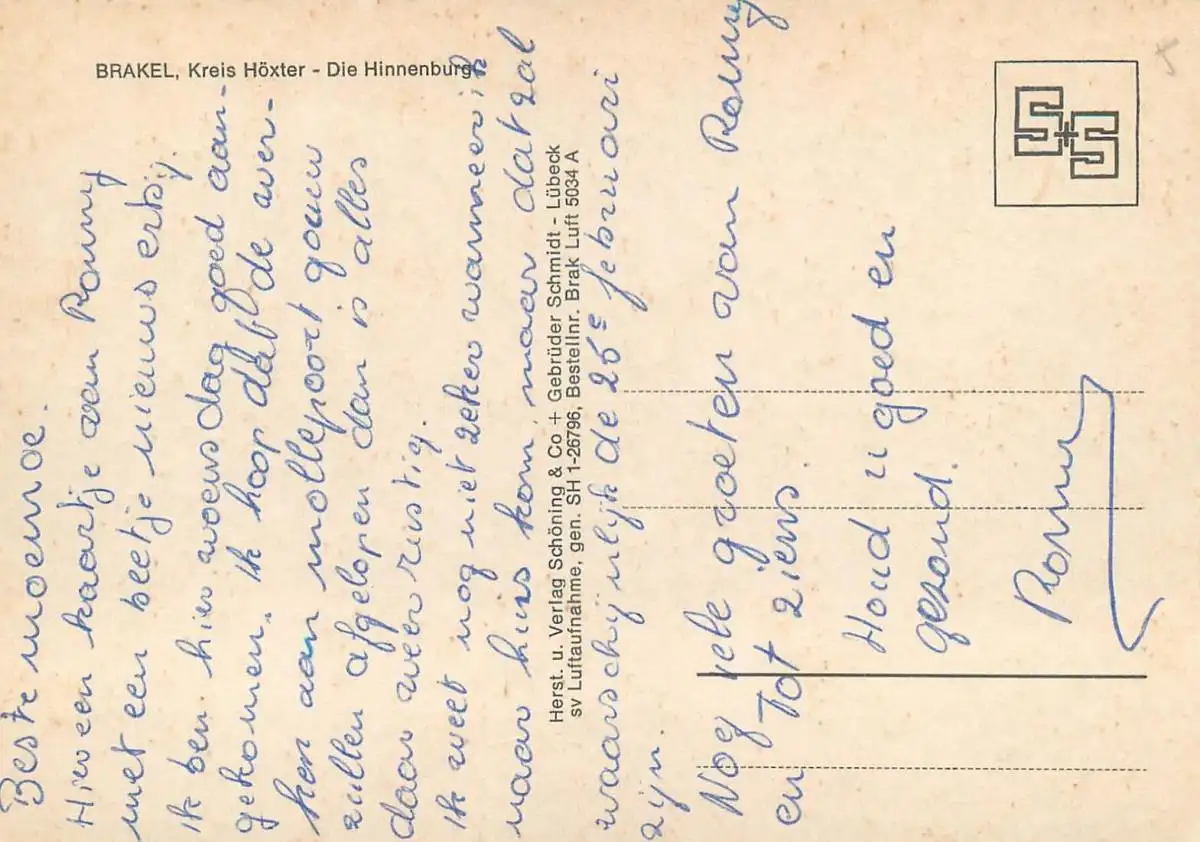 BRAKEL, Kreis Höxter - Die Hinnenburg
Beste moemoe.
Hier een kaartje van Ronny
met een beetje nieuws erbij.
Ik ben hier woensdag goed aan-
gekomen. Ik hoop dat de wer-
ken aan mollepoort gouw
zullen afgelopen dan is alles
daar weer rustig.
Ik weet nog niet zeker wanneer ik
naar huis kom, maar dat zal
waarschijnlijk de 25e februari
zijn.
Nog vele groeten van Ronny
en Tot ziens.
Houd u goed en
gezond.
Ronny
Herst. u. Verlag Schöning & Co + Gebrüder Schmidt - Lübeck
sv Luftaufnahme, gen. SH 1-26796, Bestellnr. Brak Luft 5034 A
S+S